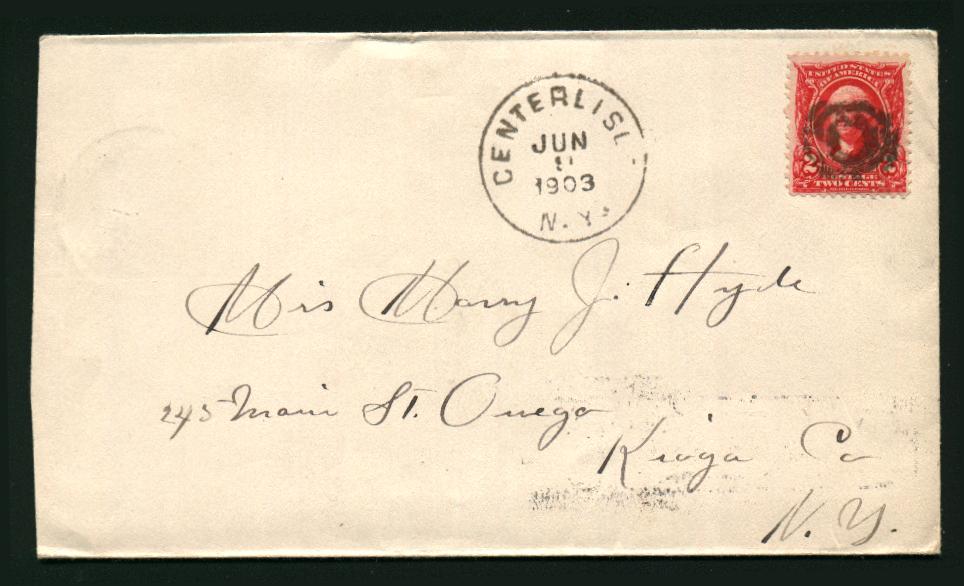 CENTERLISL
JUN
1903
N. Y.
UNITED STATES
OF AMERICA
2 2
POSTAGE
TWO CENTS
Mrs Harry J. Hyde
245 Main St. Owego
Kioga Co
N. Y.